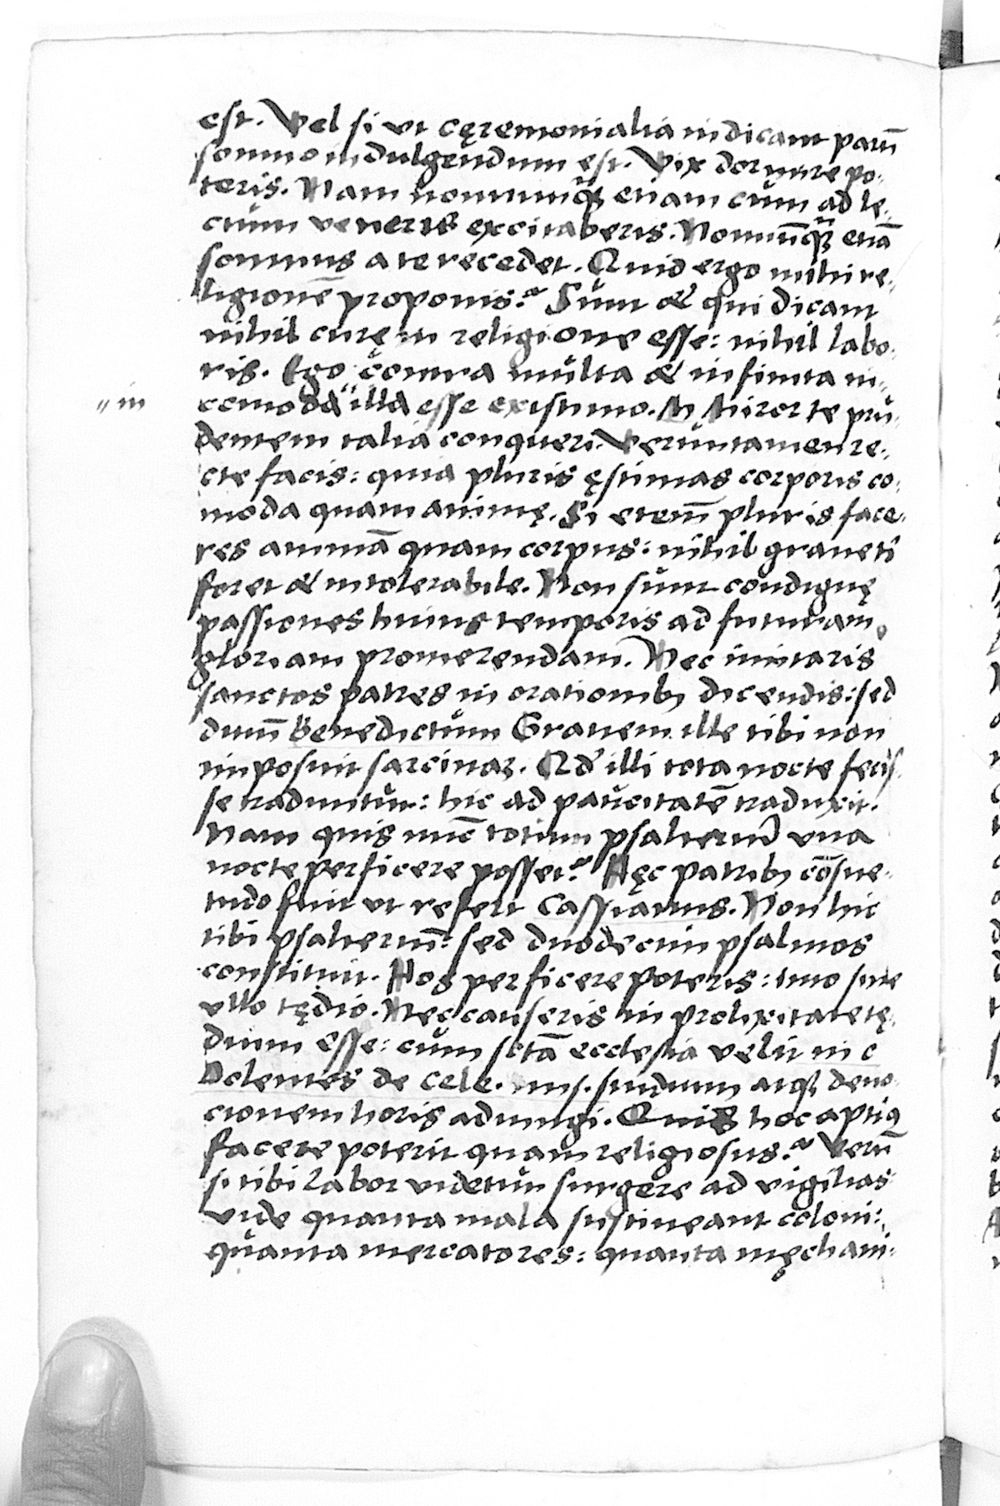 est. Vel si vt cęremonialia indicant parū
somno indulgendum est. Vix dormire po-
teris. Nam nonnunqʒ etiam cum ad le-
ctum veneris excitaberis. Nonnūqʒ etiā
somnus a te recedet. Quid ergo mihi re-
ligionē proponis? Sunt & qui dicant
nihil curę in religione esse: nihil labo-
ris. Ego contra multa & infinita in-
" in comoda " illa esse existimo. Miror te pru-
dentem talia conqueri. Veruntamen re-
cte facis: quia pluris ęstimas corporis co-
moda quam animę. Si etem̄ pluris face-
res animā quam corpus: nihil graue ti
foret & intolerabile. Non sunt condignę
passiones huius temporis ad futuram
gloriam promerendam. Nec imitaris
sanctos patres in orationibʒ dicendis: sed
diuū Benedictum Grauem ille tibi non
imposuit sarcinaʒ. Qd' illi tota nocte fecis-
se traduntur: hic ad paucitatē traduxit.
Nam quis nūc totum psalteriū vna
nocte perficere posset? Hęc patribʒ cōsue-
tudo fuit vt refert Cassianus. Non hic
tibi psalteriū: sed duodecim psalmos
constituit. Hos perficere poteris: imo sine
vllo tędio. Nec causeris in prolixitate tę-
dium esse: cum sctā ecclesia velit in c
Dolentes de cele. mis. studium atqʒ deuo-
cionem horis adiungi. Quis hoc aptius
facere poterit quam religiosus? Verū
si tibi labor videtur surgere ad vigilias
vide quanta mala sustineant coloni:
quanta mercatores: quanta męchani-